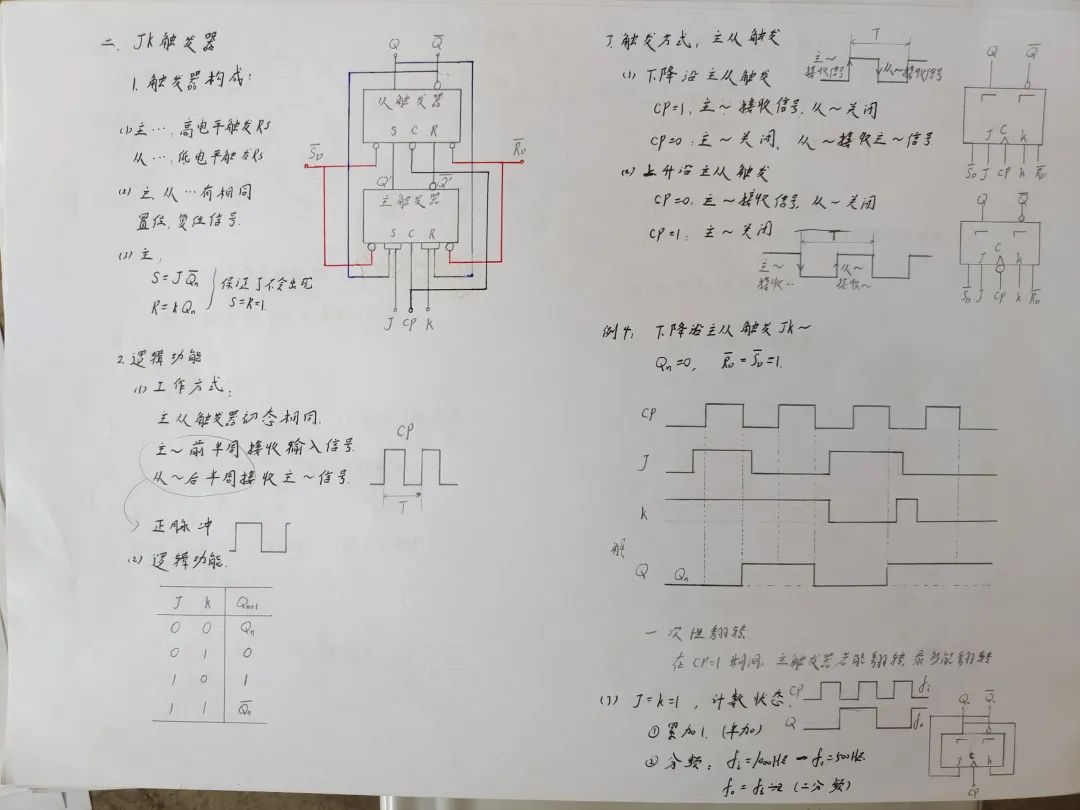 二. JK触发器
1. 触发器构成:
(1) 主…, 高电平触发RS
从…, 低电平触发RS
(2) 主、从…有相同
置位, 复位信号.
(3) 主:
S = JQ̅n
R = KQn
保证了不会出现
S=R=1.
Q Q̅
从触发器
S C R
S̅D R̅D
Q' Q̅'
主触发器
S C R
J CP K
2. 逻辑功能
(1) 工作方式:
主从触发器初态相同.
主~前半周接收输入信号.
从~后半周接收主~信号.
CP
T
正脉冲
(2) 逻辑功能.
J K Qn+1
0 0 Qn
0 1 0
1 0 1
1 1 Q̅n
3. 触发方式: 主从触发
(1) 下降沿主从触发
CP=1, 主~接收信号, 从~关闭
CP=0: 主~关闭, 从~接收主~信号
T
主~
接收信号
从~接收信号
Q Q̅
J C K
S̅D J CP K R̅D
(2) 上升沿主从触发
CP=0: 主~接收信号, 从~关闭
CP=1: 主~关闭
T
主~
接收…
从~
接收~
Q Q̅
C
J K
S̅D J CP K R̅D
例4: 下降沿主从触发JK~
Qn=0, R̅D=S̅D=1.
CP
J
K
解:
Q Qn
一次性翻转
在CP=1期间, 主触发器若能翻转, 最多能翻转
(3) J=K=1, 计数状态.
① 累加1. (半加)
② 分频: fi=1000Hz — fo=500Hz.
fo = fi÷2 (二分频)
CP fi
Q fo
Q Q̅
J C K
CP